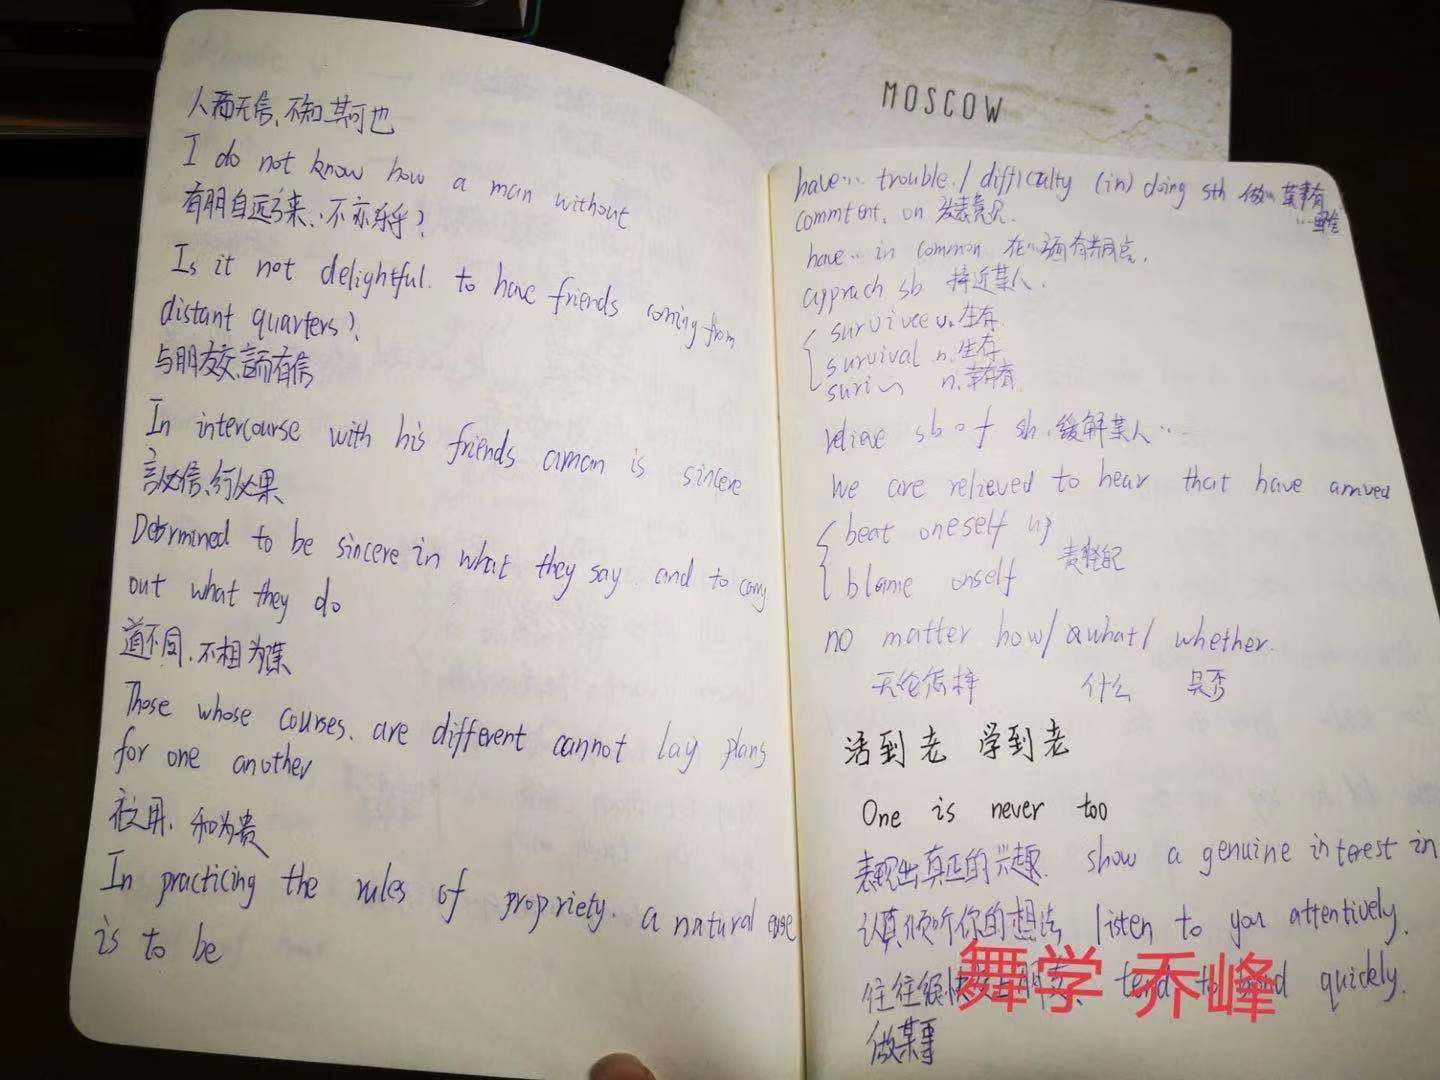 人而无信、不知其可也
I do not know how a man without
有朋自远方来、不亦乐乎？
Is it not delightful. to have friends coming from
distant quarters?
与朋友交、言而有信
In intercourse with his friends aman is sincere
言必信、行必果
Determined to be sincere in what they say. and to carry
out what they do
道不同、不相为谋
Those whose courses. are different cannot lay plans
for one another
礼之用、和为贵
In practicing the rules of propriety. a natural ease
is to be
MOSCOW
have… trouble./ difficulty (in) doing sth 做…某事有
…困难
comment. on 发表意见.
have… in common 在…方面有共同点.
apprach sb 接近某人.
survivee v. 生存.
survival n. 生存
n. 幸存者.
relieve sb of sth. 缓解某人…
We are relieved to hear that have arrived
beat oneself up
责怪自己
blame onself
no matter how/ what/ whether.
无伦怎样 什么 是否
活到老 学到老
One is never too
表现出真正的兴趣. show a genuine interest in
认真倾听你的想法 listen to you attentively.
往往很快交上朋友、 tend to bond quickly.
做某事
舞学 乔峰